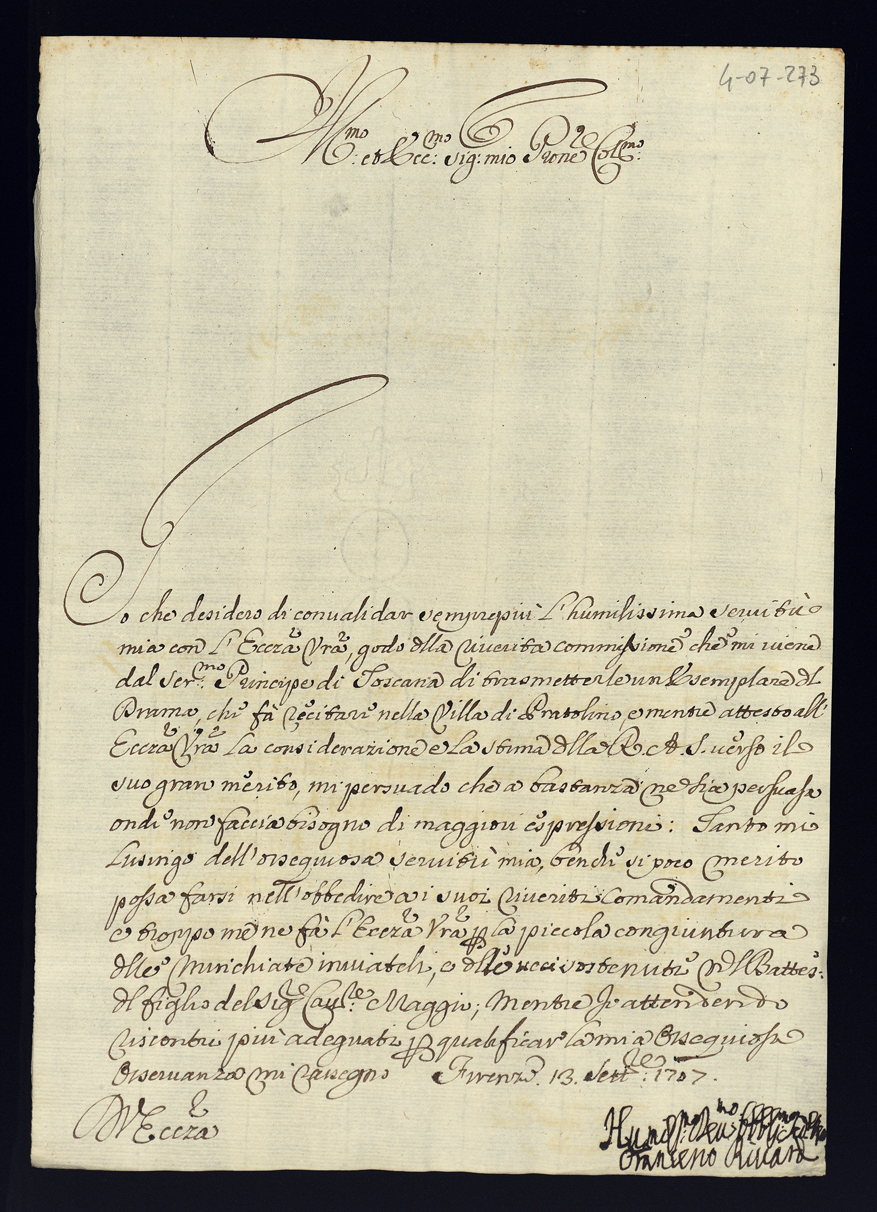 4-07-273
Ill.mo et Ecc.mo Sig: mio Prone Col.mo
Io che desidero di convalidar semprepiù l'humilissima servitù
mia con l'Eccza Vra, godo dlla riverita commissione che mi viene
dal Ser.mo Principe di Toscana di trasmetterle un Esemplare dl
Drama, che fà recitare nella Villa di Pratolino, e mentre attesto all'
Eccza Vra la considerazione e la stima dlla R. A. S. verso il
suo gran merito, mi persuado che a bastanza ne sia persuasa
onde non faccia bisogno di maggiori espressioni: Tanto mi
lusingo dell'ossequiosa servitù mia, benche si poco merito
possa farsi nell'obbedire a i suoi riveriti Comandamenti
e troppo me ne fà l'Eccza Vra p la piccola congiuntura
dlle Minchiate inviateli, e dlle veci sostenute nel Battes:
dl figlio del Sig.re Cau.re Maggi; Mentre Io attendendo
riscontri più adeguati p qualificar la mia Ossequiosa
Osservanza mi rassegno Firenze 13. Sett.re 1707.
D V Eccza
Humil.mo Deu.mo Obblig.mo
Francesco Riccardi